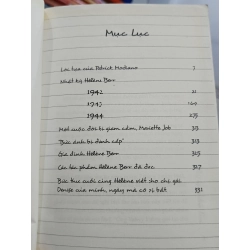 Mục Lục
Lời tựa của Patrick Modiano 7
Nhật ký Hélène Berr
1942 21
1943 169
1944 275
Một cuộc đời bị giam cầm, Mariette Job 313
"Bức ảnh bị đánh cắp"
Gia đình Hélène Berr 325
Các tác phẩm Hélène Berr đã đọc 327
Bức thư cuối cùng Hélène viết cho chị gái
Denise của mình, ngay mà cô bị bắt 331